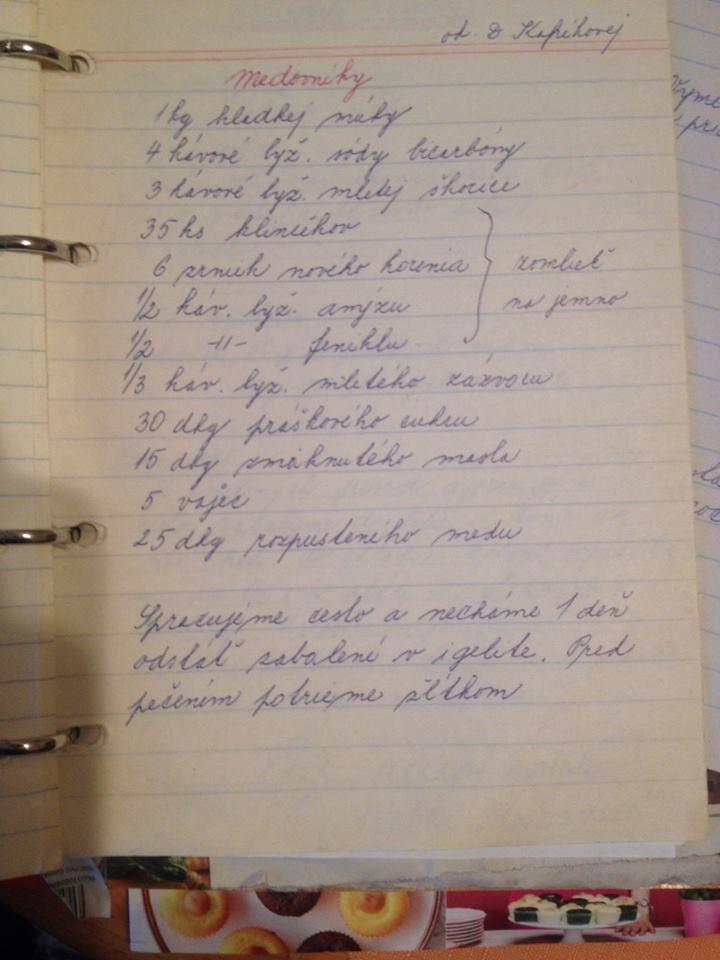 od. D Kapikovej
Medovníky
1 kg hladkej múky
4 kávové lyž. sódy bicarbóny
3 kávové lyž. mletej škorice
35 ks klinčekov
6 zrniek nového korenia
zomlieť
na jemno
1/2 káv. lyž. anýzu
1/2 -11- feniklu
1/3 káv. lyž. mletého zázvoru
30 dkg práškového cukru
15 dkg zmäknutého masla
5 vajec
25 dkg rozpusteného medu
Spracujeme cesto a necháme 1 deň
odstáť zabalené v igelite. Pred
pečením potrieme žĺtkom